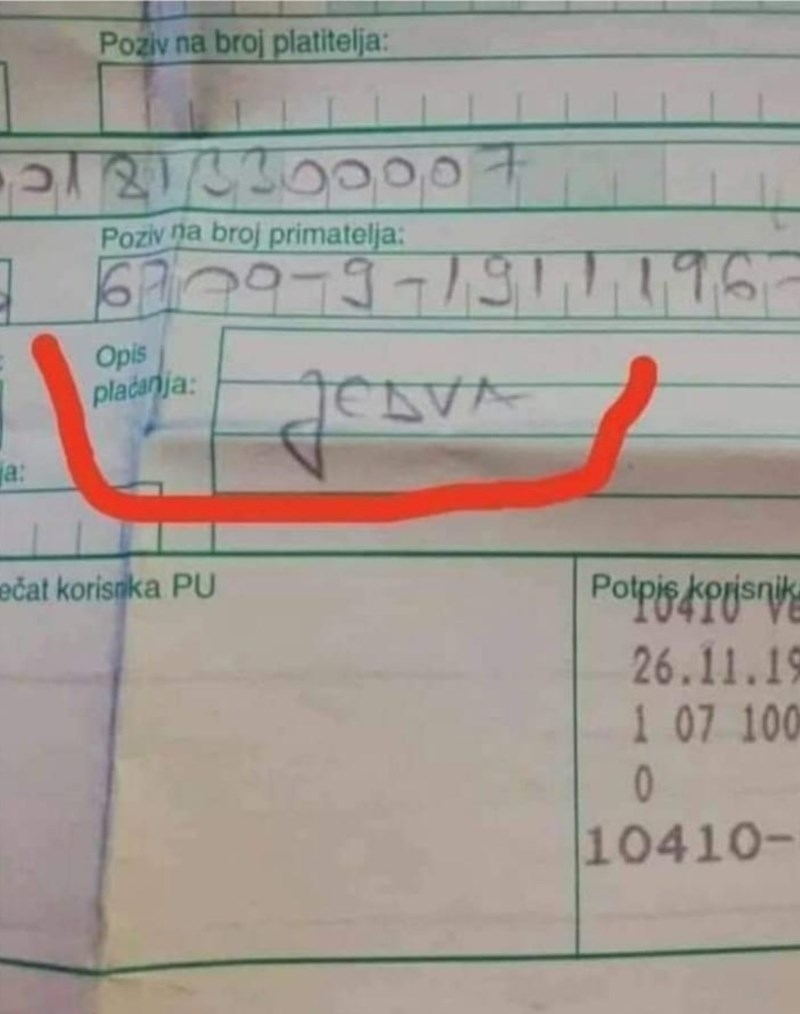 Poziv na broj platitelja:
01813300007
Poziv na broj primatelja:
6700-9-19111967
Opis
plaćanja:
JEDVA
ja:
ečat korisnika PU
Potpis korisnik
10410 Ve
26.11.19
1 07 100
0
10410-